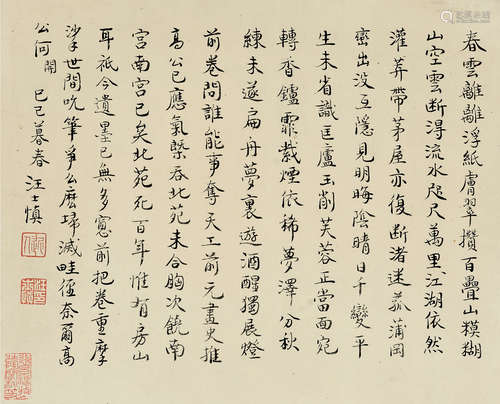 春雲離離浮紙膚翠攢百疊山糢糊
山空雲斷得流水咫尺萬里江湖依然
灌莽帶茅屋亦復斷渚迷菰蒲岡
巒出没互隱見明晦陰晴日千變平
生未省識匡廬玉削芙蓉正當面宛
轉香鑪霏截煙依稀夢澤分秋
練未遂扁舟夢裏遊酒醒獨展燈
前卷問誰能事奪天工前元畫史推
高公已應氣壓吞北苑未合胸次饒南
宮南宮已矣北苑死百年惟有房山
耳祇今遺墨已無多窓前把卷重摩
挲世間吮筆爭么麼埽滅畦徑奈爾高
公何開 己巳暮春 汪士慎